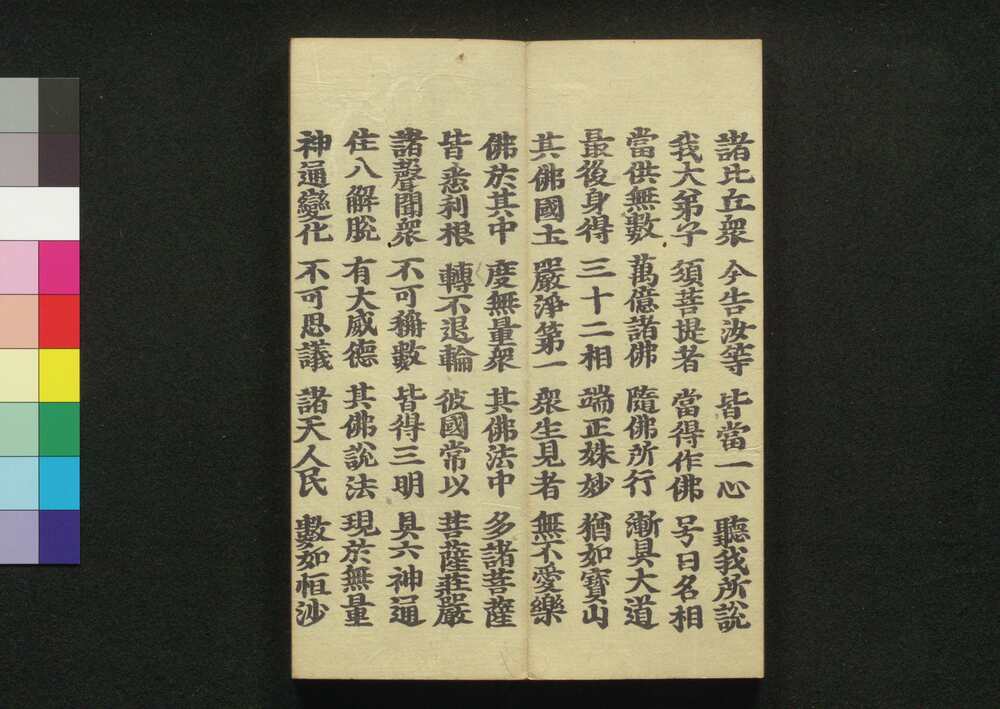 諸比丘衆 今告汝等 皆當一心 聽我所説
我大弟子 須菩提者 當得作佛 号曰名相
當供無數 萬億諸佛 隨佛所行 漸具大道
最後身得 三十二相 端正姝妙 猶如寶山
其佛國土 嚴淨第一 衆生見者 無不愛樂
佛於其中 度無量衆 其佛法中 多諸菩薩
皆悉利根 轉不退輪 彼國常以 菩薩莊嚴
諸聲聞衆 不可稱數 皆得三明 具六神通
住八解脱 有大威德 其佛説法 現於無量
神通變化 不可思議 諸天人民 數如恒沙